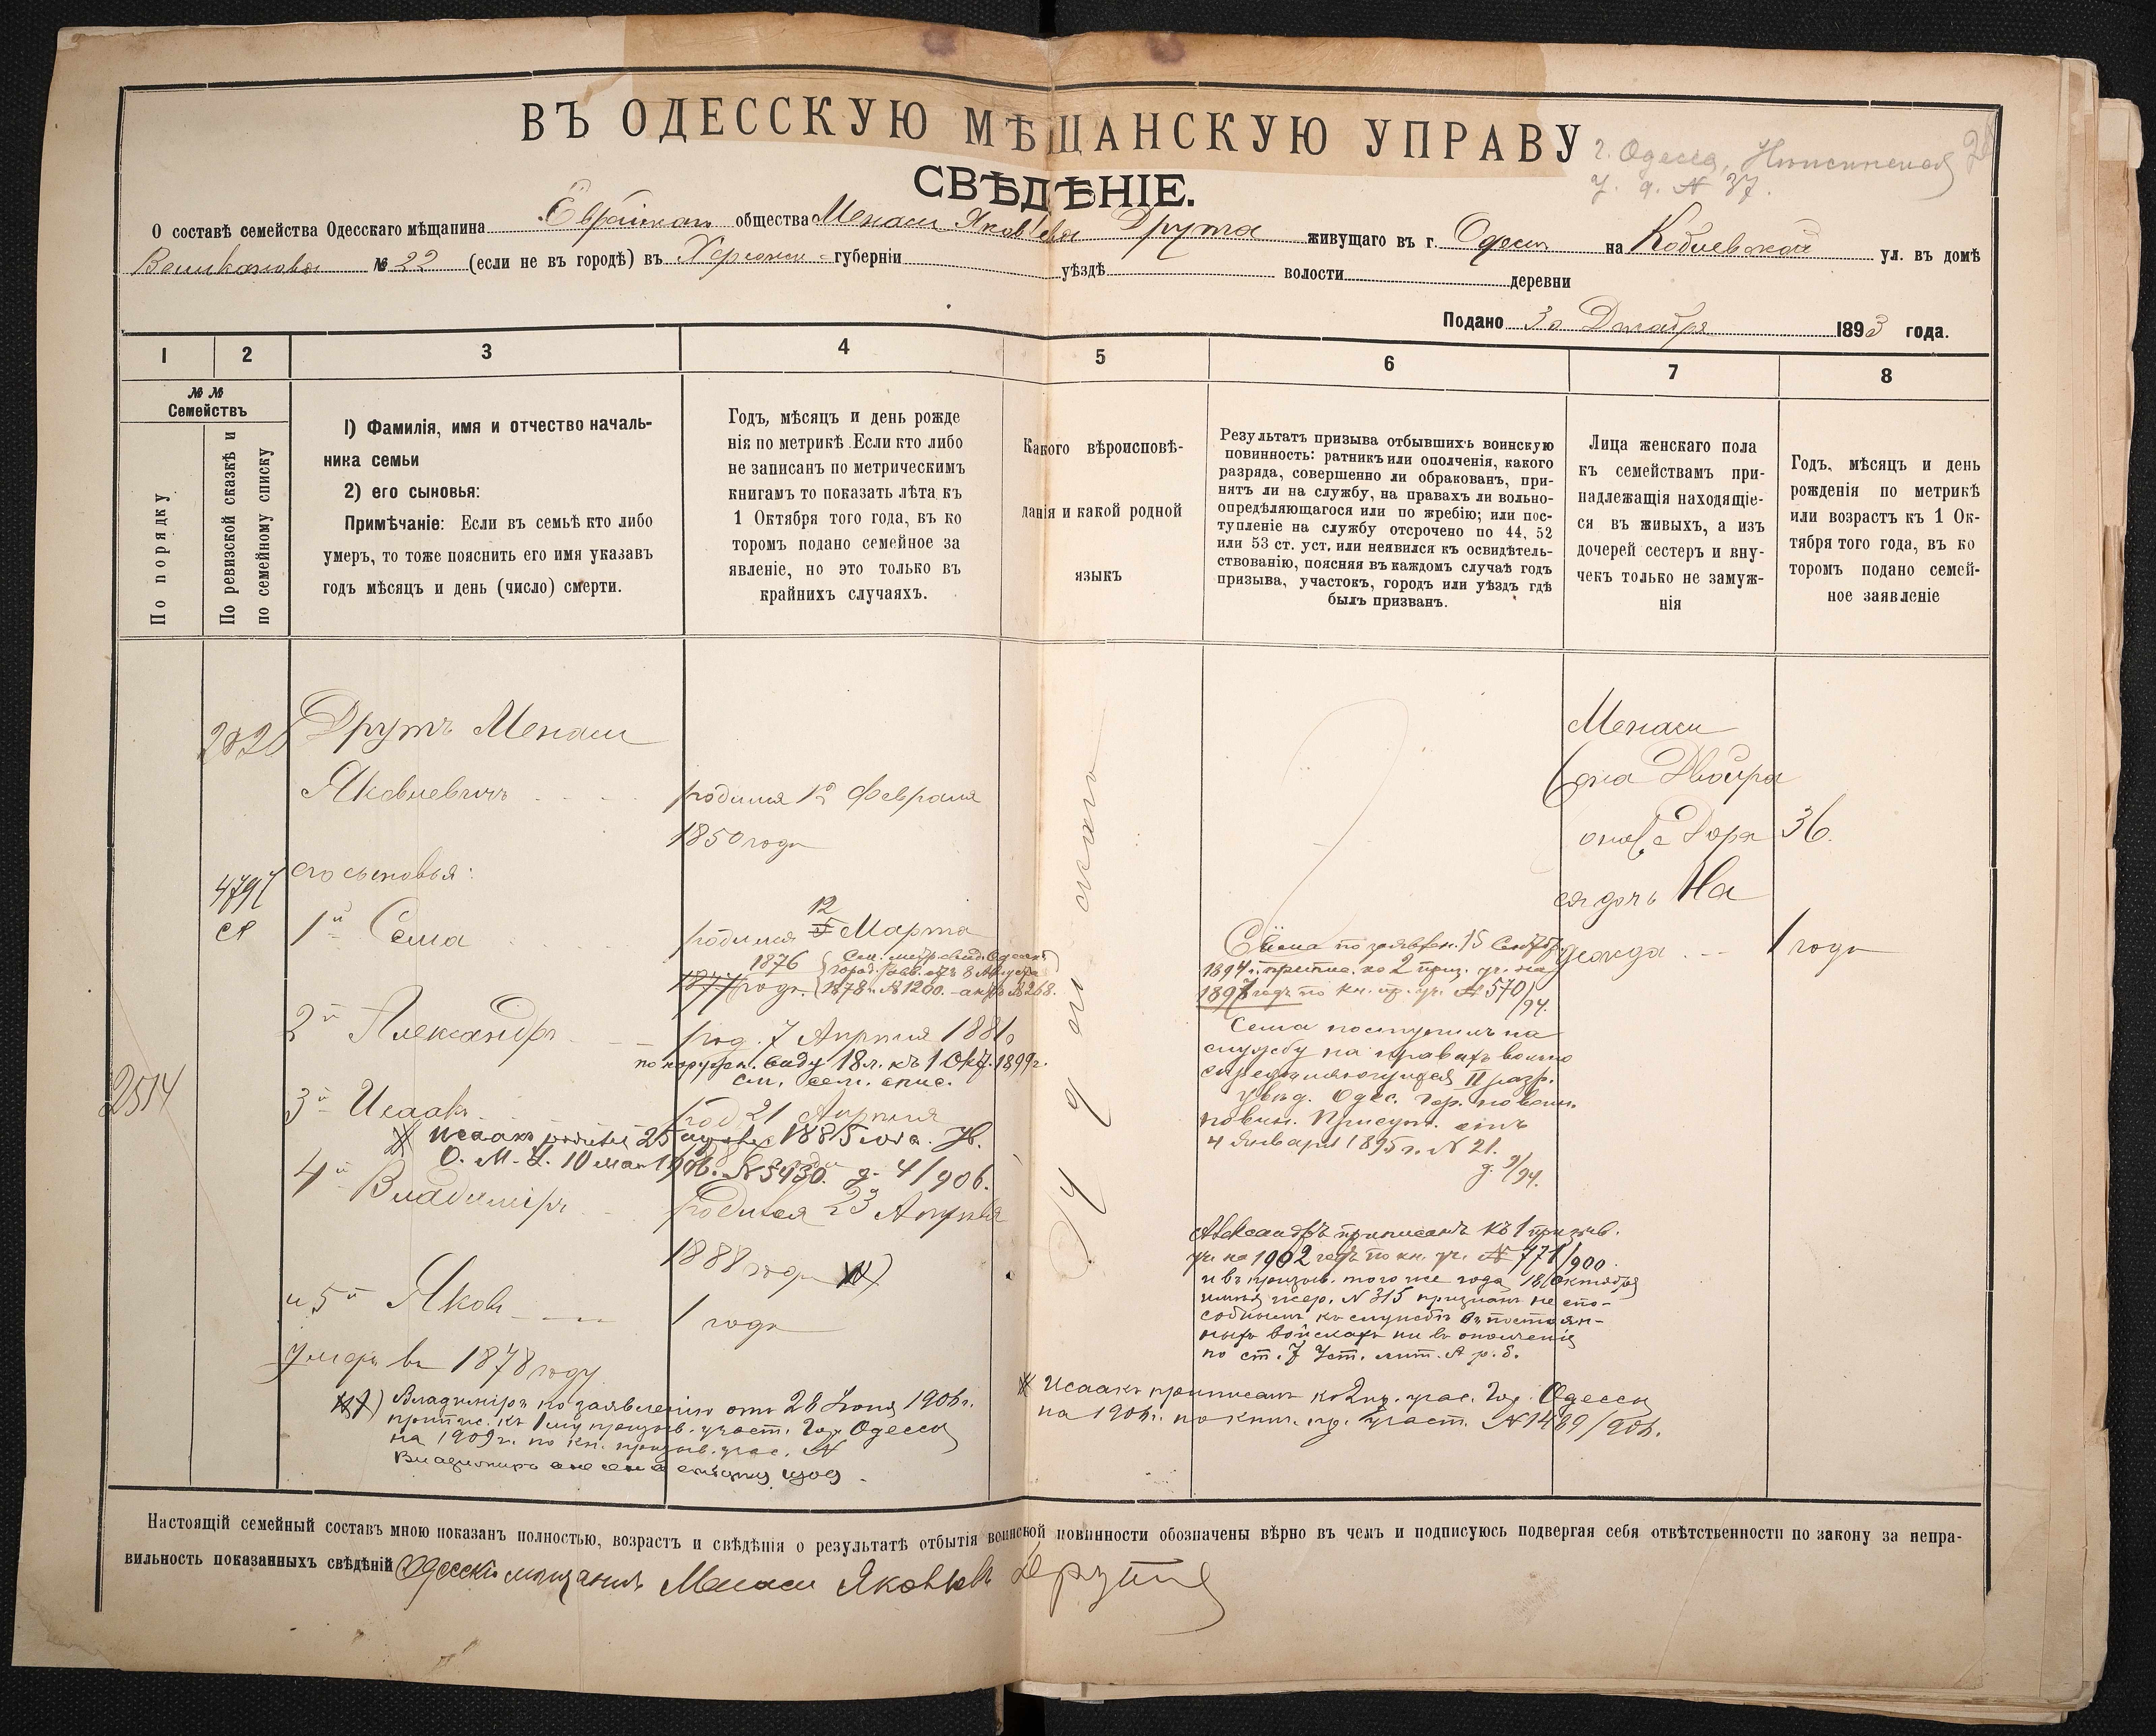 ВЪ ОДЕССКУЮ МѢЩАНСКУЮ УПРАВУ
г. Одесса,
у. д. № 37.
СВѢДѢНІЕ.
О составѣ семейства Одесскаго мѣщанина Еврейскаго общества Менаши Яковлева Друта живущаго въ г. Одессѣ на Коблевской ул. въ домѣ
Великанова № 22 (если не въ городѣ) въ Херсонск. губерніи уѣздѣ волости деревни
Подано 30 Декабря 1893 года.
1 2 3 4 5 6 7 8
№ № Семействъ
По порядку
По ревизской сказкѣ и
по семейному списку
1) Фамилія, имя и отчество началь-
ника семьи
2) его сыновья:
Примѣчаніе: Если въ семьѣ кто либо
умеръ, то тоже пояснить его имя указавъ
годъ мѣсяцъ и день (число) смерти.
Годъ, мѣсяцъ и день рожде
нія по метрикѣ. Если кто либо
не записанъ по метрическимъ
книгамъ то показать лѣта къ
1 Октября того года, въ ко
торомъ подано семейное за
явленіе, но это только въ
крайнихъ случаяхъ.
Какого вѣроисповѣ-
данія и какой родной
языкъ
Результатъ призыва отбывшихъ воинскую
повинность: ратникъ или ополченія, какого
разряда, совершенно ли обракованъ, при-
нятъ ли на службу, на правахъ ли вольно-
опредѣляющагося или по жребію; или пос-
тупленіе на службу отсрочено по 44, 52
или 53 ст. уст. или неявился къ освидѣтель-
ствованію, поясняя въ каждомъ случаѣ годъ
призыва, участокъ, городъ или уѣздъ гдѣ
былъ призванъ.
Лица женскаго пола
къ семействамъ при-
надлежащія находящіе-
ся въ живыхъ, а изъ
дочерей сестеръ и вну-
чекъ только не замуж-
нія
Годъ, мѣсяцъ и день
рожденія по метрикѣ
или возрастъ къ 1 Ок-
тября того года, въ ко
торомъ подано семей-
ное заявленіе
2828
Друтъ Менаши
Яковлевичъ
родился 12 Февраля
1850 года
его сыновья:
4797
1й Сема
родился 12 Марта
1876
1877 года
1878 г. № 1200. - актъ № 268.
2й Александръ
род. 7 Апрѣля 1881 г
по наружн. виду 18 л. къ 1 Окт. 1899 г.
см. сем. спис.
2514
3й Исаакъ
род 21 Апрѣля
Исаакъ родился 25 1885 года. Ув.
О. М. У. 10 мая 1906. № 5430. д. 4/906.
4й Владиміръ
родился 23 Апрѣля
1888 года
и 5й Яковъ
1 года
умеръ въ 1878 году
Владиміръ по заявленію отъ 28 Іюня 1908 г.
припис. къ 1му призыв. участ. Гор. Одессы
на 1909 г. по кн. призыв. учас. №
Іудейскаго
Сёма по заявлен. 15 Сентяб.
1894 г. припис. ко 2 приз. уч. на
1897 годъ по кн. пр. уч. № 570/94.
Сема поступилъ на
службу на правахъ вольно
опредѣляющагося II разр.
увѣд. Одес. Гор. по воин.
повин. Присут. отъ
4 Января 1895 г. № 21.
Александръ приписанъ къ 1 призыв.
уч. на 1902 годъ по кн. уч. № 771/900.
и въ призыв. того же года 18 октября
вынувъ жер. № 315 признанъ не спо-
собнымъ къ службѣ въ постоян-
ныхъ войскахъ ни въ ополченіе
по ст. 7 Уст. лит. А р. б.
Исаакъ приписанъ ко 2 пр. учас. Гор. Одессы
на 1906 г. по книг. пр. участ. № 1489/906.
Менаши
жена Двойра
она же Дора 36.
ея дочь На
дежда 1 года
Настоящій семейный составъ мною показанъ полностью, возрастъ и свѣдѣнія о результатѣ отбытія воинской повинности обозначены вѣрно въ чемъ и подписуюсь подвергая себя отвѣтственности по закону за непра-
вильность показанныхъ свѣдѣній Одесскій мѣщанинъ Менаши Яковлевъ Друтъ